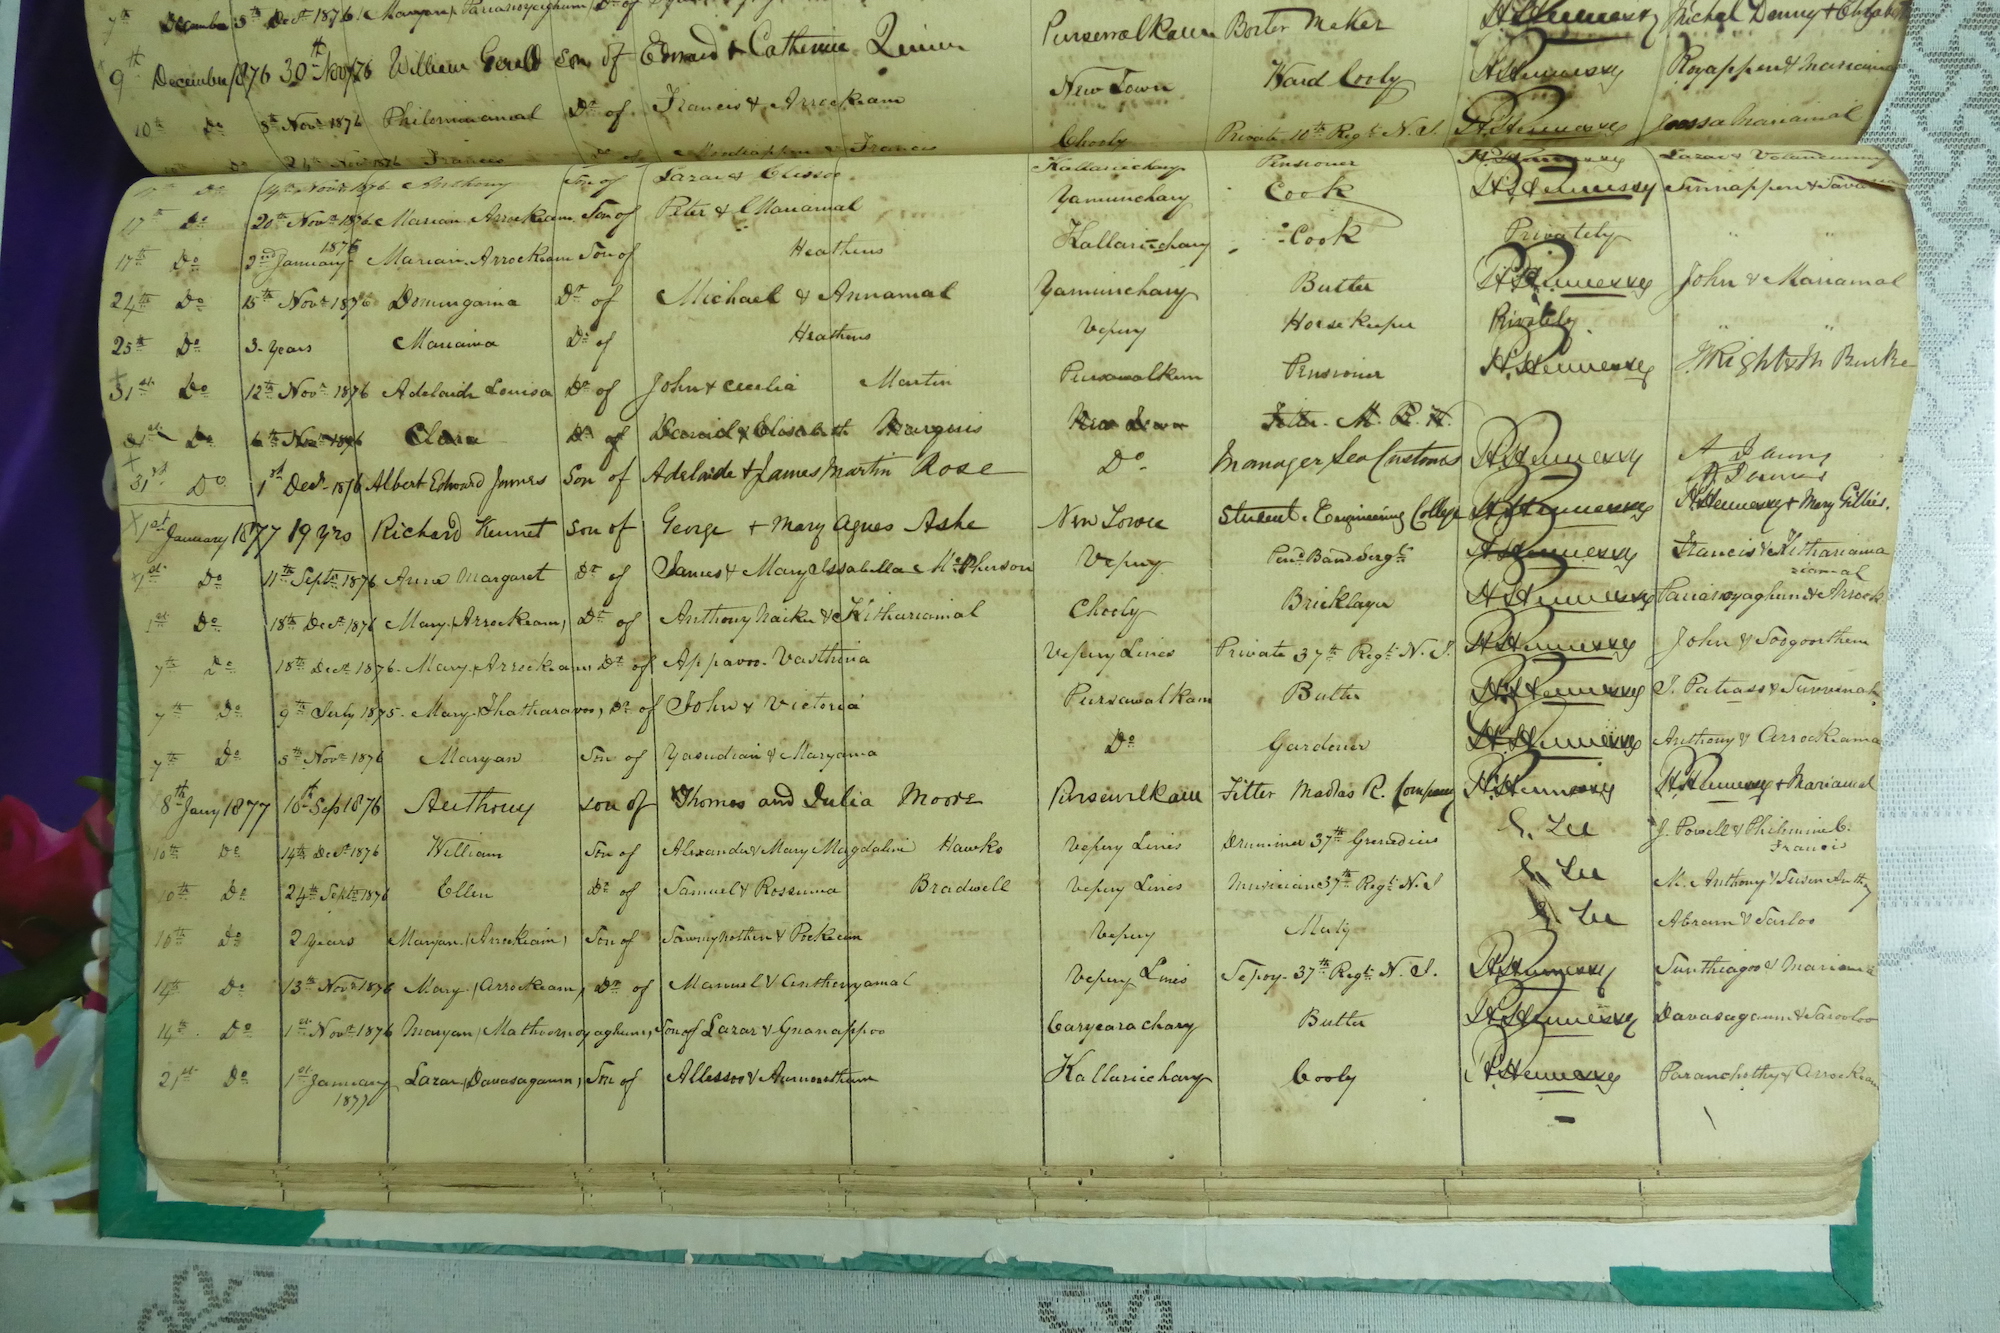 7th December 5th Decr 1876 Maryan
9th December 1876 30th Nov/76 William Gerald son of Edward & Catherine Quinn Pursewalkam Boiler Maker H. Hennessy Michel Denny & Elizabeth
10th Do 5th Novr 1876 Philominamal Dr of Francis & Arrockeam New Town Ward Cooly H. Hennessy Royappen & Mariama
24th Novr 1876 Francis Dr of & Francis Chooly Private 10th Regt N.I. H. Hennessy Mariamal
Do 14th Novr 1876 Anthony Son of Lazar & Kallariechary Pensioner H. Hennessy Lazar &
17th Do 20th Novr 1876 Marian Arrockeam Son of Peter & Mariamal Yamunchary Cook H. Hennessy Sinnappen &
17th Do 2nd January 1876 Marian Arrockeam Son of Heathens Kallariechary Cook Privately " "
24th Do 15th Novr 1876 Domingaina Dr of Michael & Annamal Yamunchary Butler H. Hennessy John & Mariamal
25th Do 3 Years Mariama Dr of Heathens Vepery Horse Keeper Privately " "
31st Do 12th Novr 1876 Adelaide Louisa Dr of John & Cecilia Martin Pursawalkum Pensioner H. Hennessy J. Wright & M Burke
31st Do 6th Novr 1876 Clara Dr of David & Elisabeth Marquis New Town Fitter M. R. H.
31st Do 1st Decr 1876 Albert Edward James Son of Adelaide & James Martin Rose Do Manager Sea Customs H. Hennessy
1st January 1877 19 yrs Richard Kennet Son of George & Mary Agnes Ashe New Town Student Engineering College H. Hennessy H. Hennessy & Mary Gillies.
1st Do 11th Septr 1876 Anna Margaret Dr of James & Mary Issabella McPherson Vepery H. Hennessy Francis & Kithariama
1st Do 18th Decr 1876 Mary (Arrockeam) Dr of Anthony Naiker & Kithariamal Chooly Bricklayer H. Hennessy
7th Do 18th Decr 1876 Mary Arrockeam Dr of Appavoo Vasthina Vepery Lines Private 37th Regt N.I. H. Hennessy John &
7th Do 9th July 1875 Mary Dr of John & Victoria Pursawalkam Butler H. Hennessy
7th Do 5th Novr 1876 Maryan Son of Yasudian & Maryama Do Gardener H. Hennessy Anthony & Arrockeama
8th Jany 1877 16th Sep 1876 Anthony son of Thomas and Julia Moore Pursewelkam Fitter Madras R. Company H. Hennessy H. Hennessy & Mariamal
10th Do 14th Decr 1876 William Son of Alexander & Mary Magdaline Hawks Vepery Lines Drummer 37th Grenadiers Lee J. Powell & Philomine C.
Francis
10th Do 24th Septr 1876 Ellen Dr of Samuel & Rosanna Bradwell Vepery Lines Musician 37th Regt N.I Lee M. Anthony & Susan Anthy
10th Do 2 Years Maryan (Arrockeam) Son of Vepery Muty Lee Abram & Sarloo
14th Do 13th Novr 1876 Mary (Arrockeam) Dr of Manuel & Anthonyamal Vepery Lines Sepoy 37th Regt N.I. H. Hennessy Santhiagoo & Mariama
14th Do 1st Novr 1876 Maryan Son of Lazar & Gnanappoo Butler H. Hennessy Davasagaum & Sarooloo
21st Do 1st January Lazar (Davasagaum) Son of Kallariechary Cooly H. Hennessy Arrockeam
1877